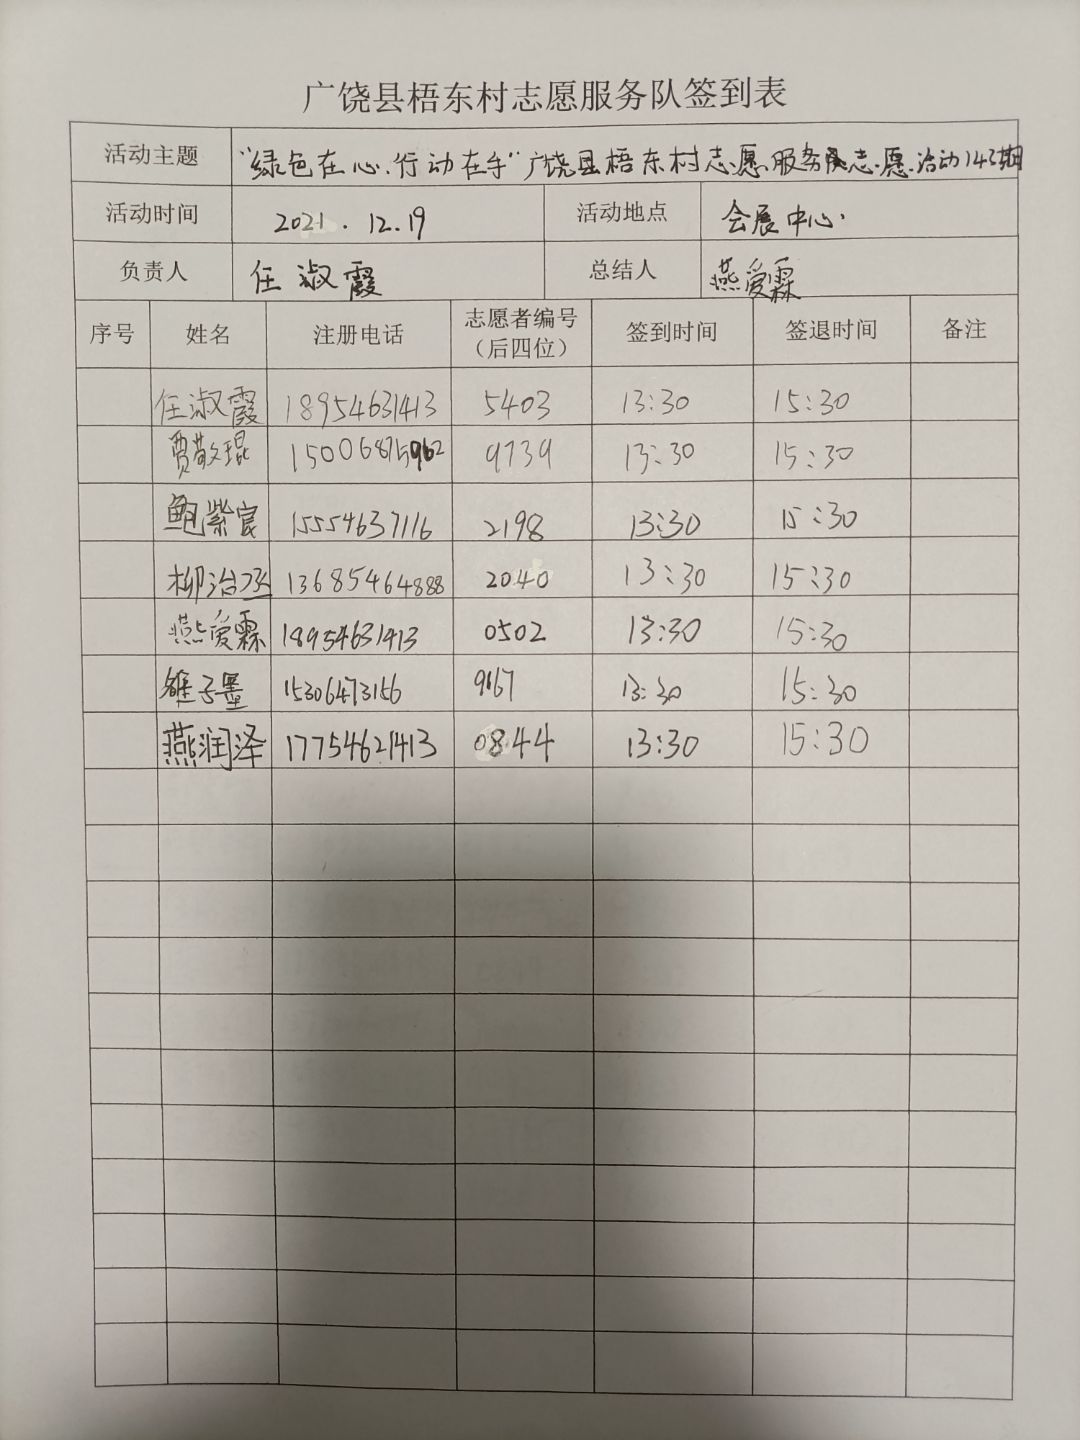 广饶县梧东村志愿服务队签到表
活动主题 "绿色在心、行动在手"广饶县梧东村志愿服务队志愿活动143期
活动时间 2021.12.19 活动地点 会展中心.
负责人 任淑霞 总结人 燕爱霖
序号 姓名 注册电话 志愿者编号（后四位） 签到时间 签退时间 备注
任淑霞 18954631413 5403 13:30 15:30
贾敬琨 15006875962 9739 13:30 15:30
鲍紫宸 15554637116 2198 13:30 15:30
柳治丞 13685464888 2040 13:30 15:30
燕爱霖 18954631413 0502 13:30 15:30
雒子墨 15306473156 9167 13:30 15:30
燕润泽 17754621413 0844 13:30 15:30